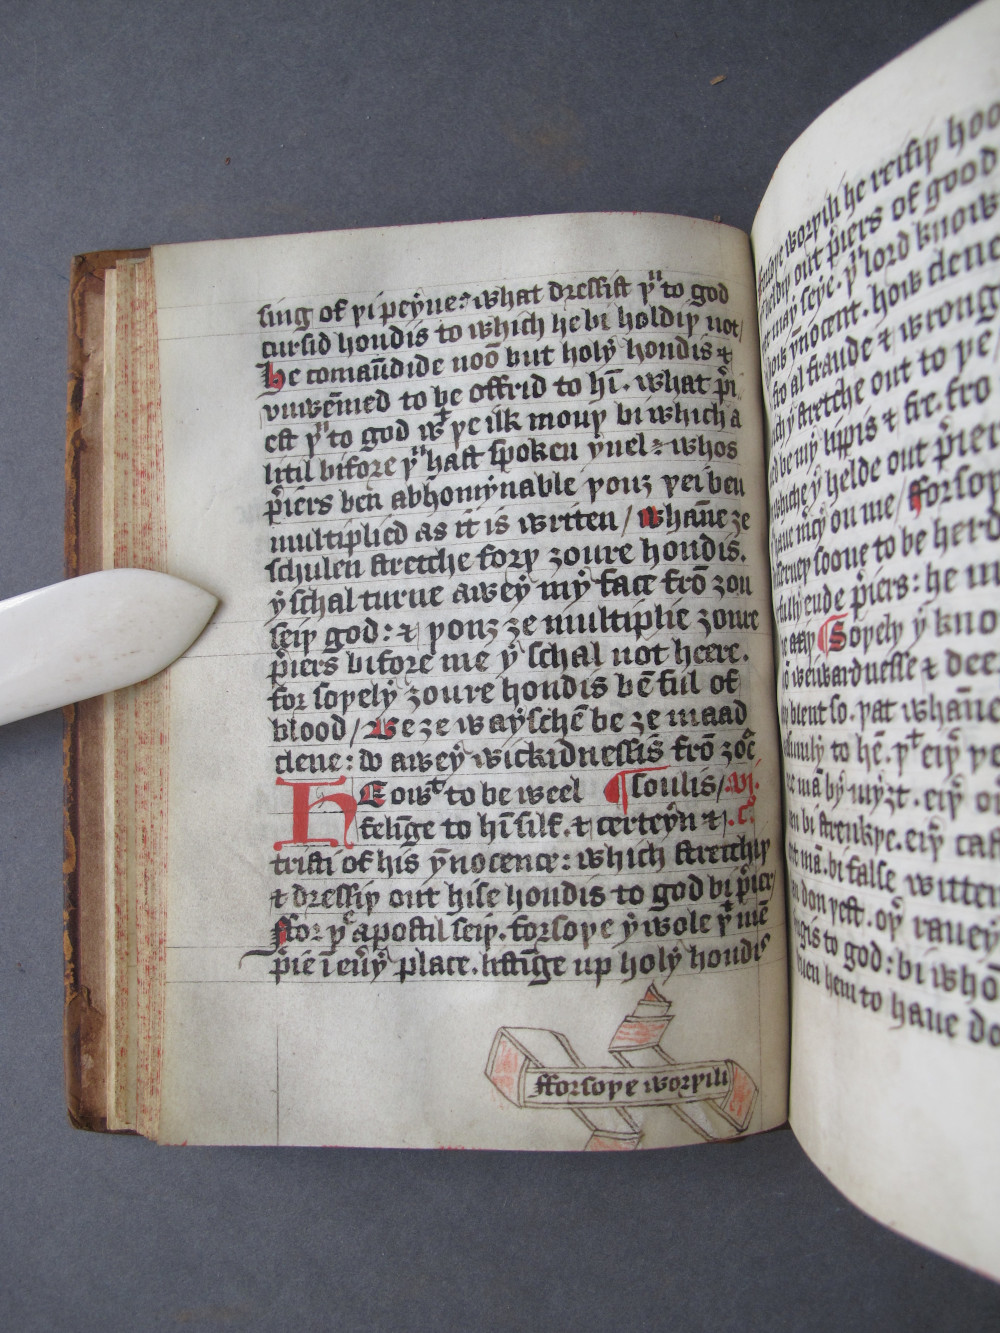 sing of þi peyne: what dressist þᵘ to god
cursid hondis to which he bi holdiþ not/
he comaūdide noō but holy hondis &
vnwēmed to be offrid to hī. what p̄i
est þᵘ to god wᵗ þe ilk mouþ bi which a
litil bifore þᵘ hast spoken yuel: whos
p̄iers ben abhomynable þouȝ þei ben
multiplied as it is writen / whāne ȝe
schulen stretche forþ ȝoure hondis.
y schal turne awey my face frō ȝou
seiþ god: & þouȝ ȝe multiplie ȝoure
p̄iers bifore me y schal not heere.
for soþely ȝoure hondis bē ful of
blood / Be ȝe wayschē be ȝe maad
clene: do awey wickidnessis frō ȝoᵉ
HE owᵗ to be weel ¶ soulis / .vi.
felīge to hī silf. & certeyn & .cᵒ.
tristi of his ynocence: which stretchiþ
& dressiþ out hise hondis to god bi p̄ier/
ffor þᵉ apostil seiþ. forsoþe y wole þᵗ mē
p̄ie ī eu̾y place. liftīge up holy hondis
fforsoþe worþili
worþili he reisiþ
out p̄iers of good
may seye. þᵘ lord know
ynocent. how clene
fro al fraude & wrong
y stretche out to þe
be my lippis & fre. fro
whiche y helde out p̄ier
haue m̄cy on me / fforsoþ
soone to be herd
p̄iers: he
¶ Soþely y kno
&
blent so. þat whāne
to hē. þᵗ eiþ
mā by myȝt. eiþ
bi strenkþe. eiþ
mā. bi false witten
don þeft. oþ raueyn
to god: bi whō
hem to haue do